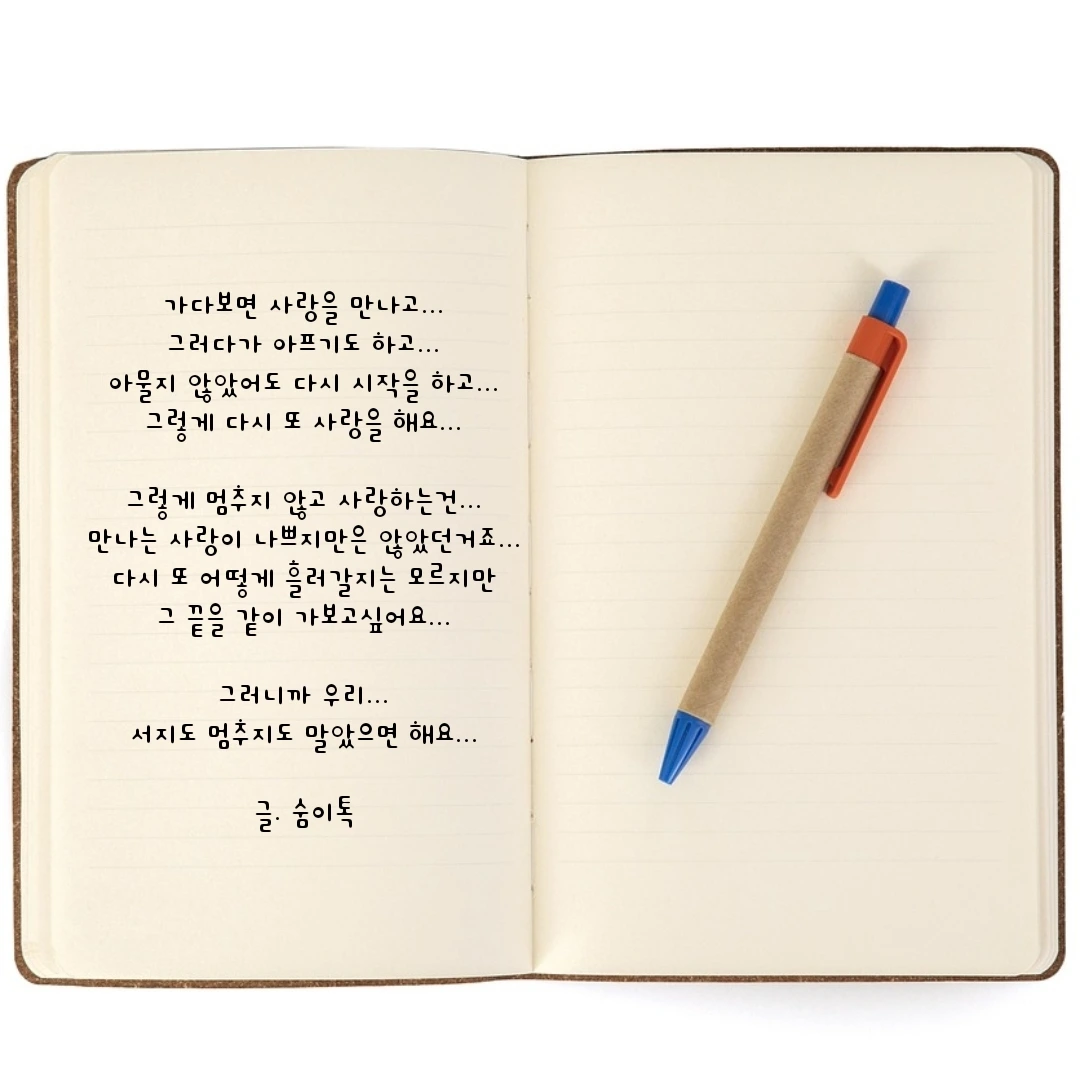 가다보면 사랑을 만나고...
그러다가 아프기도 하고...
아물지 않았어도 다시 시작을 하고...
그렇게 다시 또 사랑을 해요...
그렇게 멈추지 않고 사랑하는건...
만나는 사랑이 나쁘지만은 않았던거죠...
다시 또 어떻게 흘러갈지는 모르지만
그 끝을 같이 가보고싶어요...
그러니까 우리...
서지도 멈추지도 말았으면 해요...
글. 숨이톡